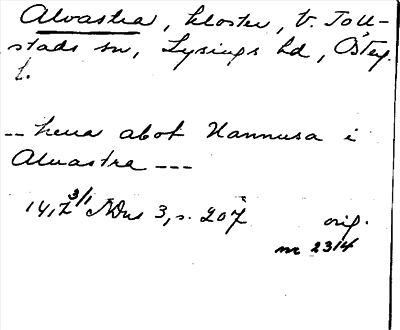 Alvastra, kloster, V. Toll-
stads sn, Lysings hd, Österg.
l.
-- hena abot Hannusa i
Aluastra ---
14,7 3/1 SDns 3, s. 207 orig.
nr 2314